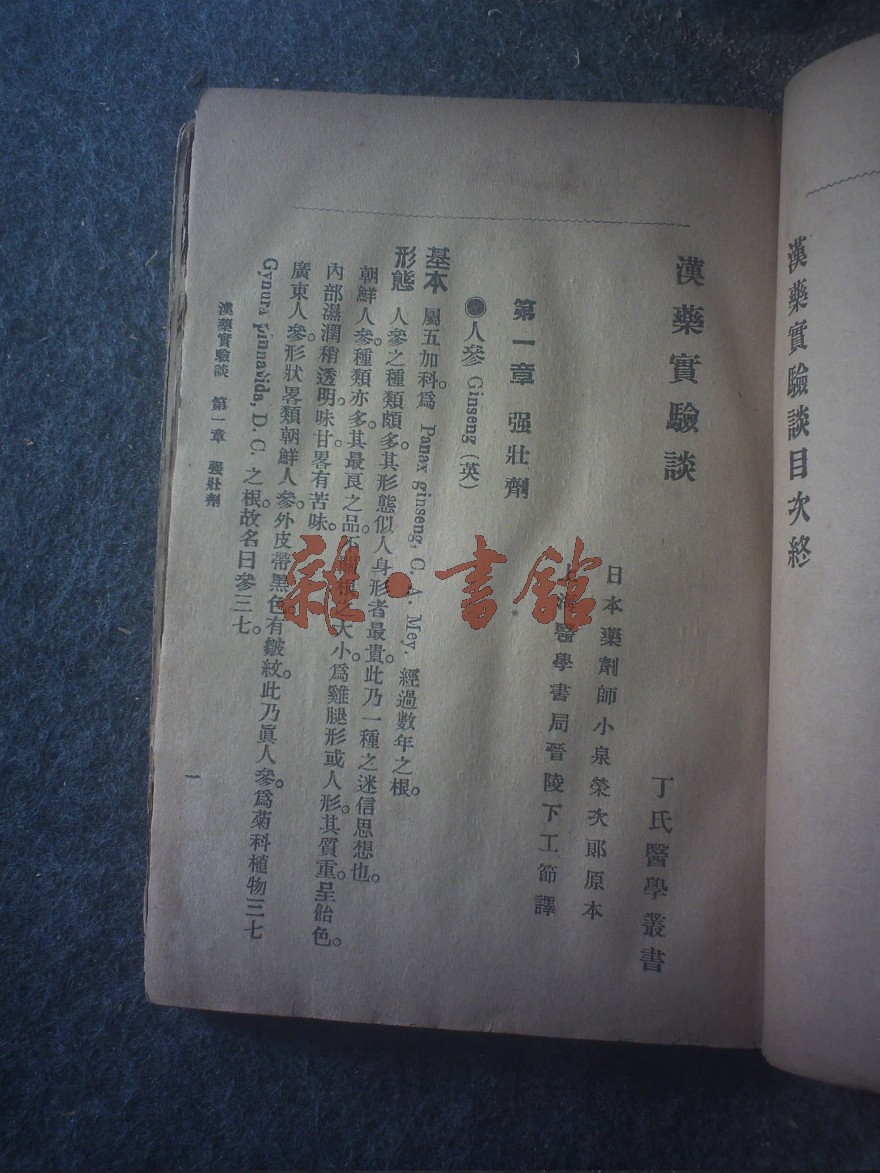 漢藥實驗談目次終
漢藥實驗談
丁氏醫學叢書
日本藥劑師小泉榮次郎原本
上海醫學書局晉陵下工節譯
第一章 强壯劑
●人參 Ginseng (英)
基本 屬五加科。爲 Panax ginseng, C. A. Mey. 經過數年之根。
形態 人參之種類頗多。其形態似人身形者最貴。此乃一種之迷信思想也。
朝鮮人參。種類亦多。其最良之品。不關根之大小。爲雞腿形或人形。其質重。呈飴色。
內部濕潤稍透明。味甘畧有苦味。
廣東人參。形狀畧類朝鮮人參。外皮帶黑色。有皺紋。此乃眞人參。爲菊科植物三七
Gynura pinnavida, D. C. 之根。故名曰參三七。
漢藥實驗談 第一章 强壯劑
一
雜·書館